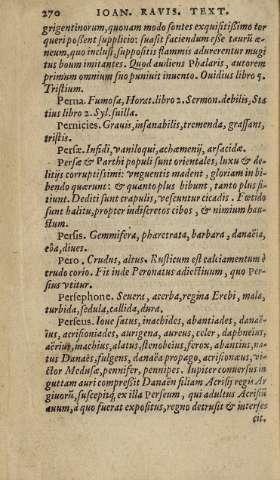 270 IOAN. RAVIS. TEXT.
grigentinorum, quonam modo sontes exquisitissimo tor
queri possent supplicio: suasit faciendum esse taurũ æ-
neum, quo inclusi, suppositis flammis adurerentur mugi
tus boum imitantes. Quod audiens Phalaris, autorem
primum omnium suo puniuit inuento. Ouidius libro 5.
Tristium.
Perna. Fumosa, Horat. libro 2. Sermon. debilis, Sta
tius libro 2. Syl. suilla.
Pernicies. Grauis, insanabilis, tremenda, grassans,
tristis.
Persæ. Infidi, vaniloqui, achæmenij, arsacidæ.
Persæ & Parthi populi sunt orientales, luxu & de-
litijs corruptissimi: vnguentis madent, gloriam in bi-
bendo quærunt: & quanto plus bibunt, tanto plus si-
tiunt. Dediti sunt crapulis, vescuntur cicadis. Fœtido
sunt halitu, propter indiscretos cibos, & nimium hau-
stum.
Persis. Gemmifera, pharetrata, barbara, danaëia,
eoa, diues.
Pero, Crudus, altus. Rusticum est calciamentum è
crudo corio. Fit inde Peronatus adiectiuum, quo Per-
sius vtitur.
Persephone. Seuens, acerba, regina Erebi, mala,
turbida, sedula, callida, dura.
Perseus. Ioue satus, inachides, abantiades, danaë-
ius, acrisioniades, aurigena, aureus, celer, daphneius,
aërius, inachius, alatus, stenoboeius, ferox, abantius, na-
tus Danaës, fulgens, danaëa propago, acrisionæus, vi-
ctor Medusæ, pennifer, pennipes. Iupiter conuersus in
guttam auri compressit Danaën filiam Acrisij regis Ar
giuorũ, suscepitq; ex illa Perseum, qui adultus Acrisiũ
auum, à quo fuerat expositus, regno detrusit & interfe-
cit.